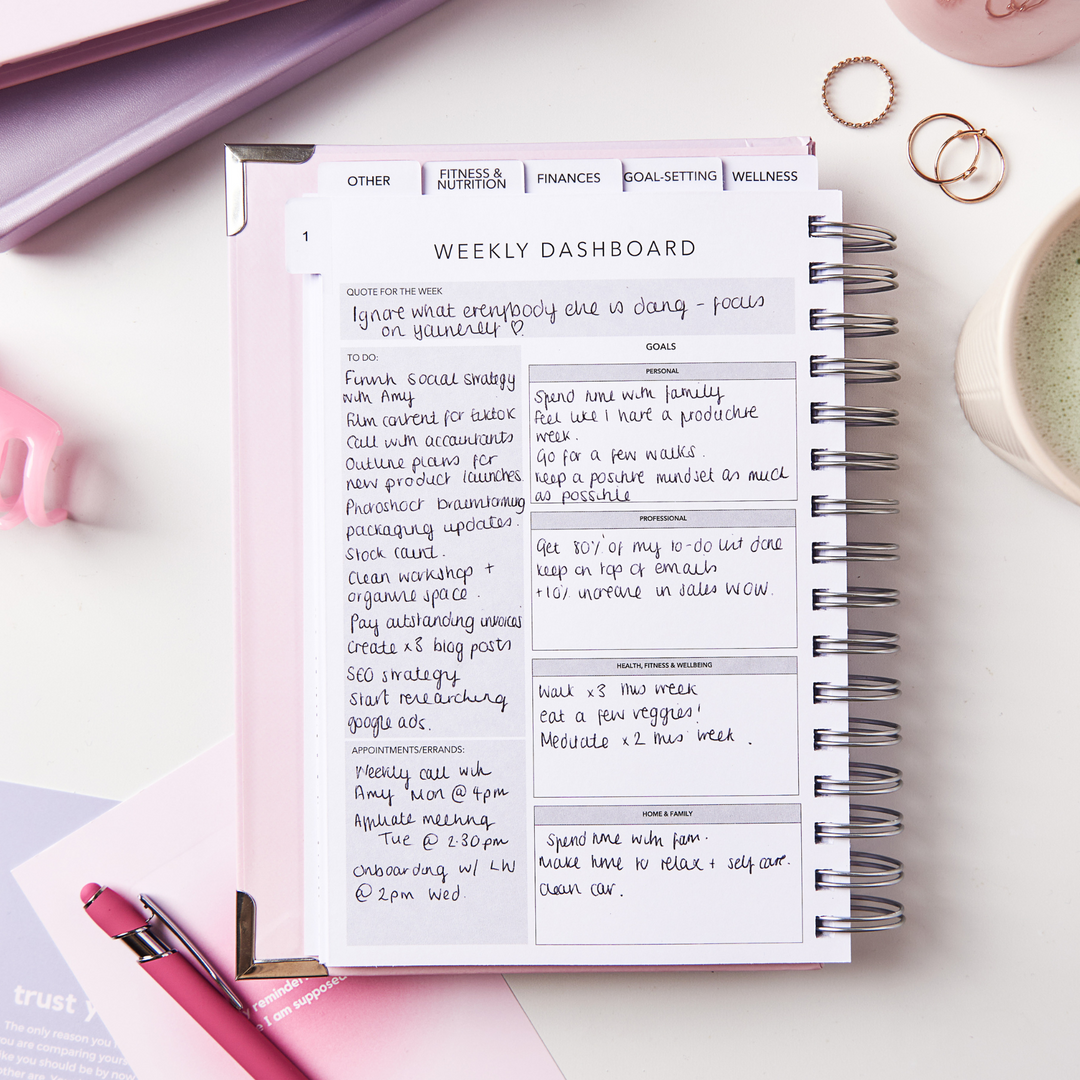 OTHER
FITNESS &
NUTRITION
FINANCES
GOAL-SETTING
WELLNESS
1
WEEKLY DASHBOARD
QUOTE FOR THE WEEK
Ignore what everybody else is doing - focus
on yourself ♡.
TO DO:
Finish social strategy
with Amy
Film content for tiktok
Call with accountants
Outline plans for
new product launches
Photoshoot brainstorming
packaging updates.
Stock count.
Clean workshop +
organise space.
Pay outstanding invoices
Create x3 blog posts
SEO strategy
Start researching
google ads.
APPOINTMENTS/ERRANDS:
Weekly call with
Amy Mon @ 4pm
Affiliate meeting
Tue @ 2.30pm
Onboarding w/ LW
@ 2pm Wed.
GOALS
PERSONAL
Spend time with family
Feel like I have a productive
week.
Go for a few walks.
keep a positive mindset as much
as possible
PROFESSIONAL
Get 80% of my to-do list done
keep on top of emails
+10% increase in sales WOW.
HEALTH, FITNESS & WELLBEING
Walk x3 this week
eat a few veggies!
Meditate x2 this week.
HOME & FAMILY
Spend time with fam.
Make time to relax + self care.
Clean car.
trust y
The only reason you
you are comparing yours
like you should be by now
other are.
y reminder
e I am supposed